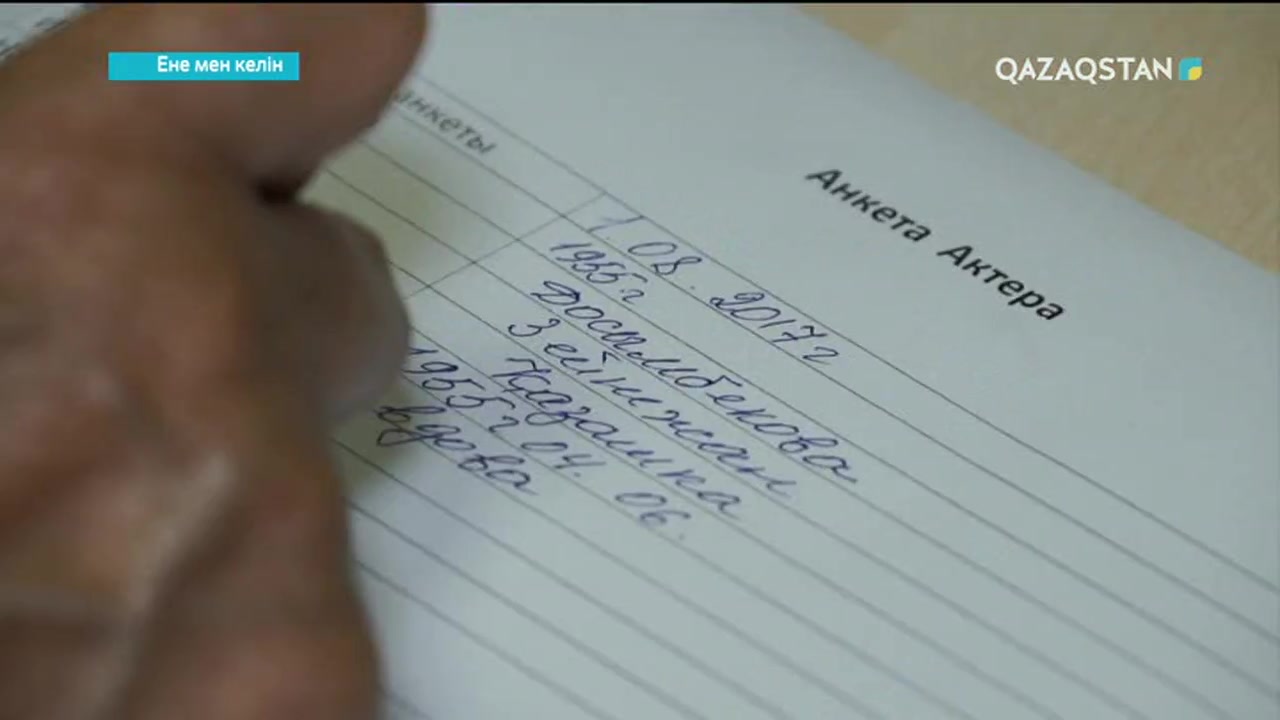 Ене мен келін
QAZAQSTAN
Анкета Актера
анкеты
1. 08. 2017 г
1955 г
Досымбекова
Зейнижан
Қазашка
1955 г 04. 06.
вдова